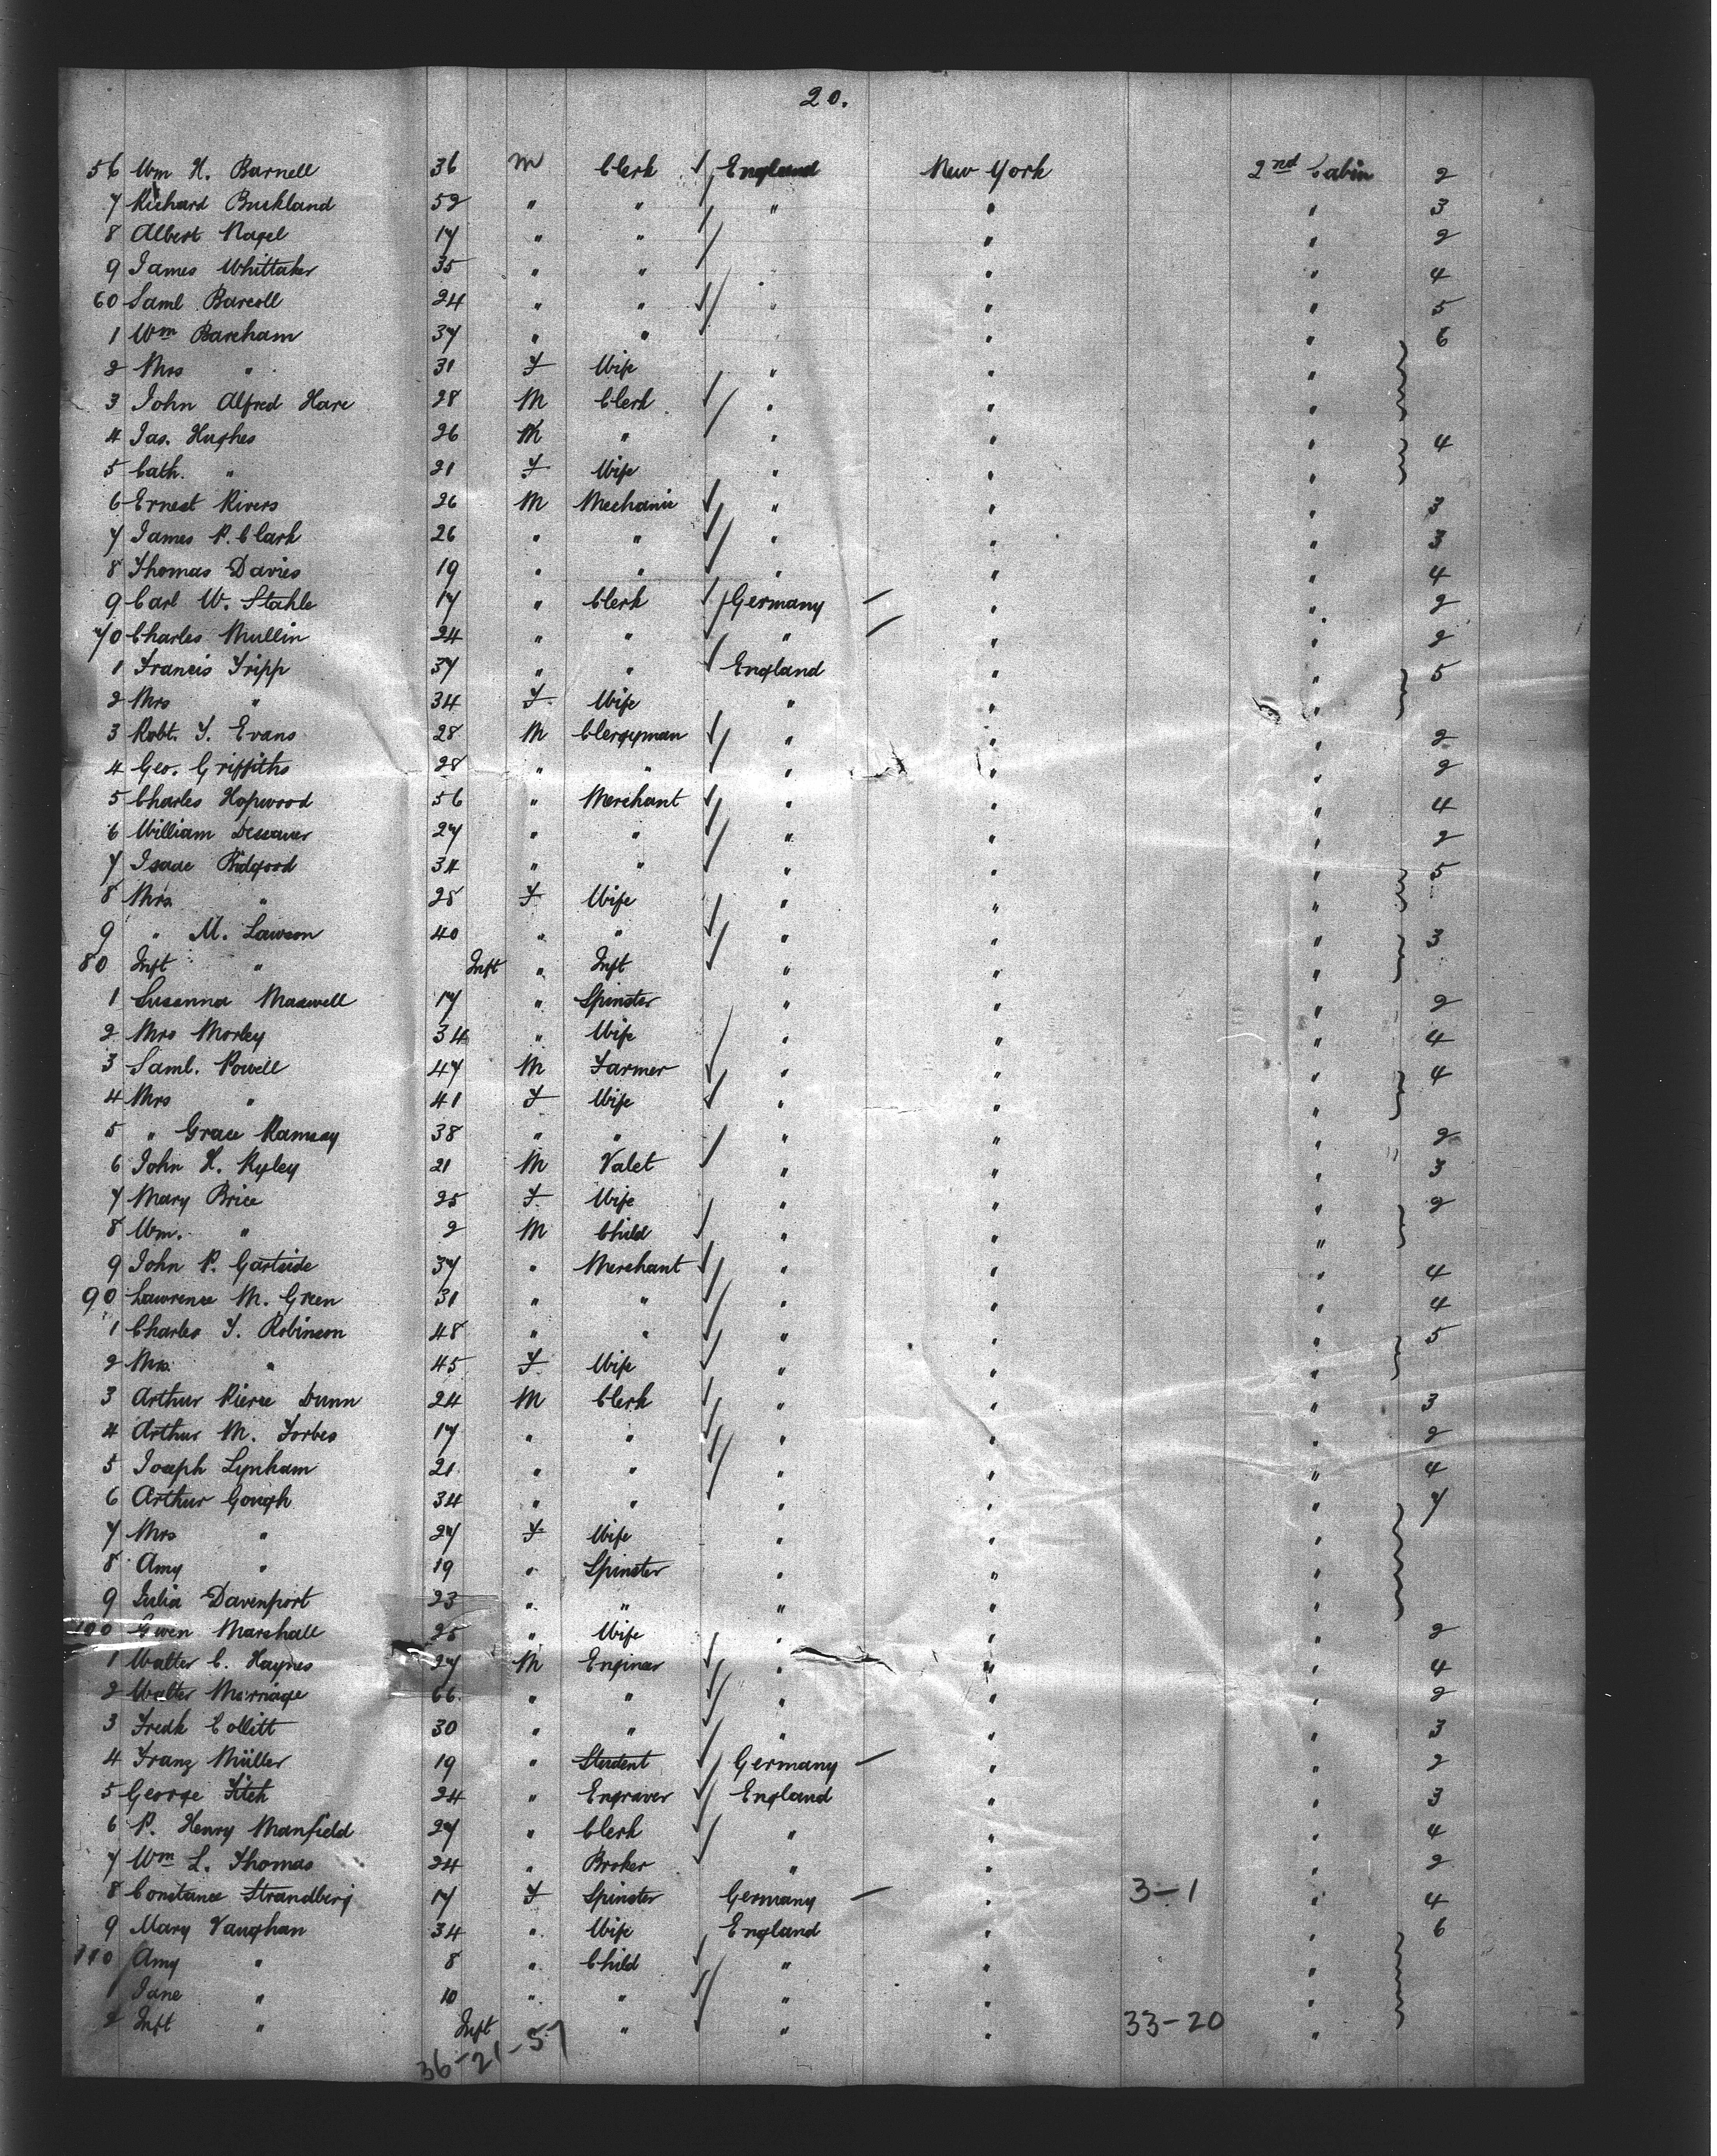 20.
56 Wm H. Barnell 36 M Clerk England New York 2nd Cabin 2
7 Richard Buckland 52 " " " " " 3
8 Albert Nagel 17 " " " " 2
9 James Whittaker 35 " " " " 4
60 Saml Barcoll 24 " " " " " 5
1 Wm Bareham 37 " " " " 6
2 Mrs " 31 F Wife " " "
3 John Alfred Hare 28 M Clerk " " "
4 Jas. Hughes 26 M " " " " 4
5 Cath. " 21 F Wife " " "
6 Ernest Rivers 26 M Mechanic " " " 3
7 James P. Clark 26 " " " " " 3
8 Thomas Davies 19 " " " " " 4
9 Carl W. Stahle 17 " Clerk Germany — " " 2
70 Charles Mullin 24 " " " — " " 2
1 Francis Tripp 37 " " England " " 5
2 Mrs " 34 F. Wife " " "
3 Robt. T. Evans 28 M Clergyman " " " 2
4 Geo. Griffiths 28 " " " " " 2
5 Charles Hopwood 56 " Merchant " " " 4
6 William 27 " " " " " 2
7 Isaac Bidgood 34 " " " " " 5
8 Mrs " 28 F Wife " " "
9 " M. Lawson 40 " " " " " 3
80 Inft " Inft " Inft " " "
1 Susanna Maxwell 17 " Spinster " " " 2
2 Mrs Morley 34 " Wife " " " 4
3 Saml. Powell 47 M Farmer " " " 4
4 Mrs " 41 F Wife " " "
5 " Grace Ramsay 38 " " " " " 2
6 John H. Ryley 21 M Valet " " " 3
7 Mary Brice 25 F. Wife " " " 2
8 Wm. " 2 M Child " " "
9 John P. Gartside 37 " Merchant " " " 4
90 Lawrence M. Green 31 " " " " " 4
1 Charles T. Robinson 48 " " " " " 5
2 Mrs " 45 F Wife " " "
3 Arthur Pierce Dunn 24 M Clerk " " " 3
4 Arthur M. Forbes 17 " " " " " 2
5 Joseph Lynham 21 " " " " " 4
6 Arthur Gough 34 " " " " " 7
7 Mrs " 27 F Wife " " "
8 Amy " 19 " Spinster " " "
9 Julia Davenport 23 " " " " "
100 Gwen Marshall 25 " Wife " " " 2
1 Walter C. Haynes 27 M Engineer " " " 4
2 Walter Marriage 66 " " " " " 2
3 Fredk Collitt 30 " " " " " 3
4 Franz Müller 19 " Student Germany — " " 2
5 George Fitch 24 " Engraver England " " 3
6 P. Henry Manfield 27 " Clerk " " " 4
7 Wm L. Thomas 24 " Broker " " " 2
8 Constance Strandberg 17 F Spinster Germany — " 3-1 " 4
9 Mary Vaughan 34 " Wife England " " 6
110 Amy " 8 " Child " " "
1 Jane " 10 " " " " "
2 Inft " Inft " " " " 33-20 "
36-21-57